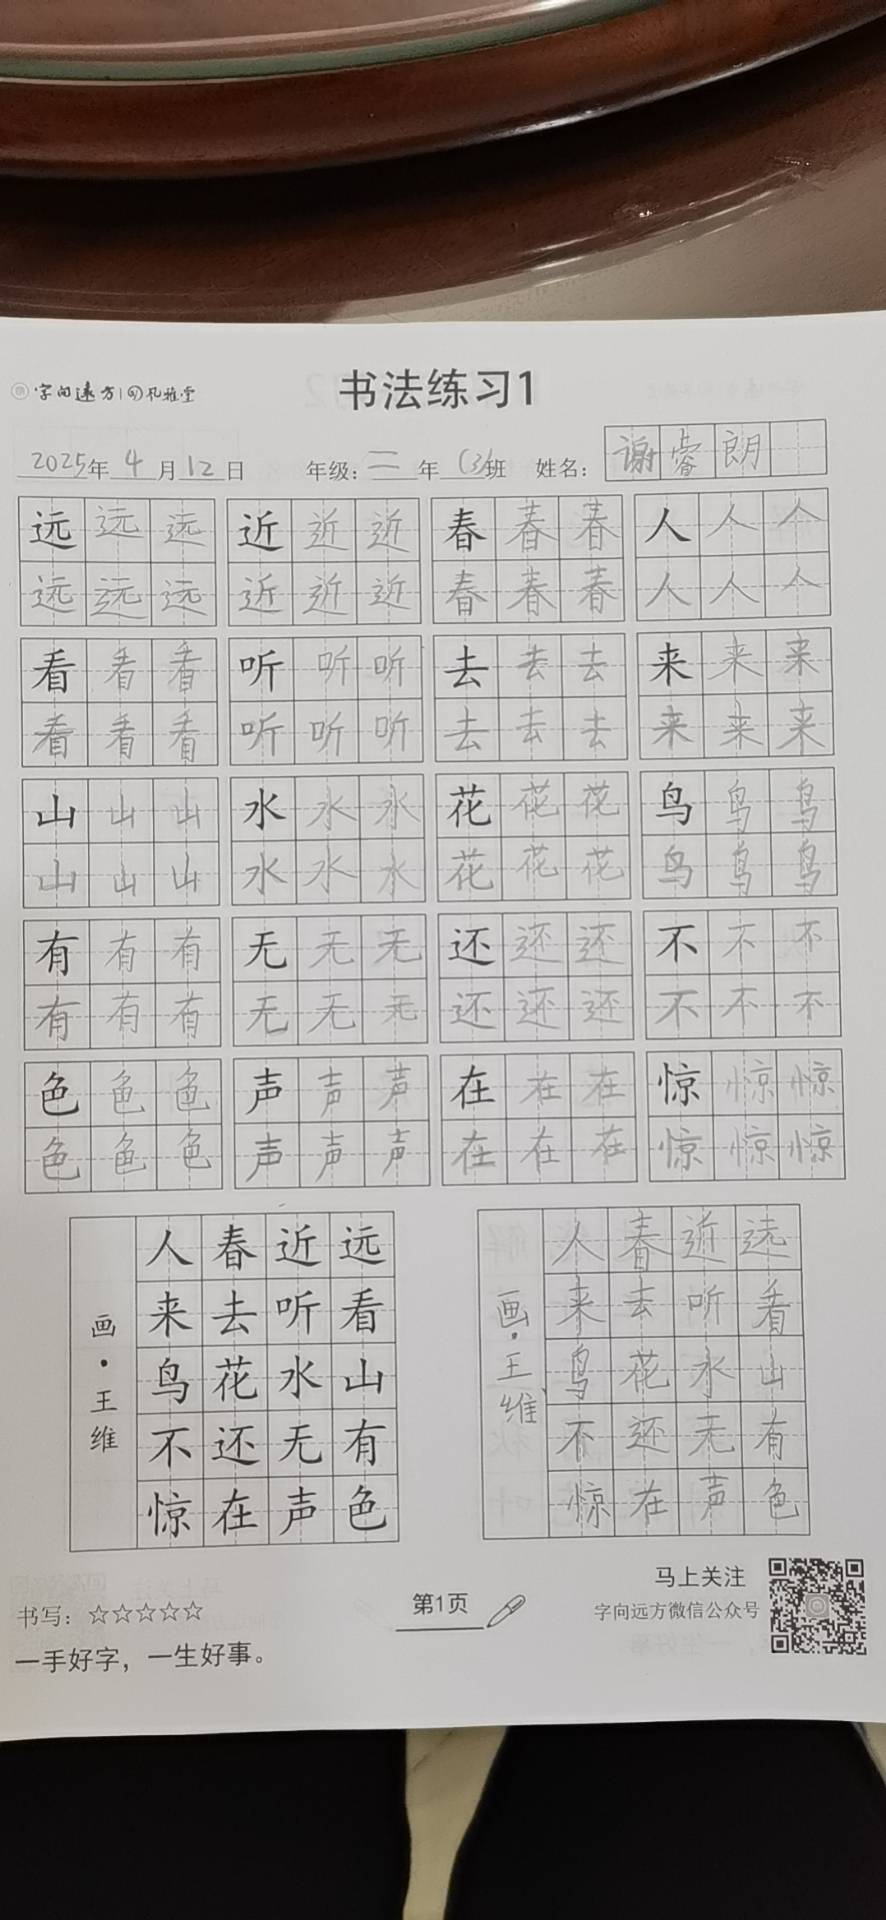 字向远方 孔雅堂
书法练习1
2025年 4 月 12 日 年级：二 年 (3)班 姓名：谢睿朗
远远远 近近近 春春春 人人人
远远远 近近近 春春春 人人人
看看看 听听听 去去去 来来来
看看看 听听听 去去去 来来来
山山山 水水水 花花花 鸟鸟鸟
山山山 水水水 花花花 鸟鸟鸟
有有有 无无无 还还还 不不不
有有有 无无无 还还还 不不不
色色色 声声声 在在在 惊惊惊
色色色 声声声 在在在 惊惊惊
远看山有色
近听水无声
春去花还在
人来鸟不惊
画·王维
远看山有色
近听水无声
春去花还在
人来鸟不惊
画·王维
书写：☆☆☆☆☆
一手好字，一生好事。
第1页
马上关注
字向远方微信公众号